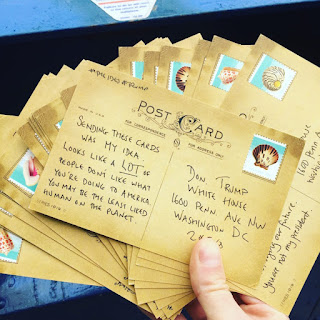 POST CARD
FOR CORRESPONDENCE
FOR ADDRESS ONLY
SENDING THESE CARDS
WAS MY IDEA
LOOKS LIKE A LOT OF
PEOPLE DON'T LIKE WHAT
YOU'RE DOING TO AMERICA.
YOU MAY BE THE LEAST LIKED
HUMAN ON THE PLANET.
DON TRUMP
WHITE HOUSE
1600 PENN AVE NW
WASHINGTON DC
1600 Penn A
ing our future.
You are not my president.